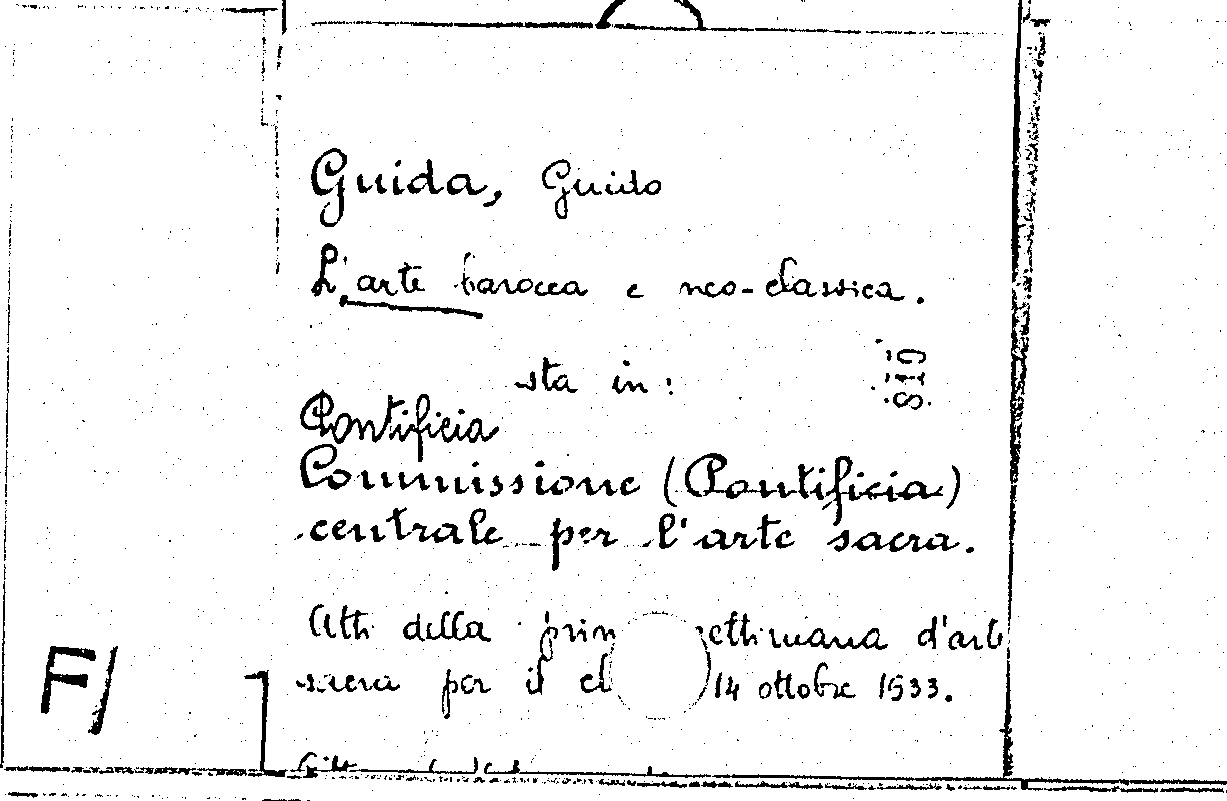 Guida, Guido
L'arte barocca e neo-classica.
819
sta in:
Pontificia
Commissione (Pontificia)
centrale per l'arte sacra.
Atti della prim settimana d'arte
sacra per il cl 14 ottobre 1933.
F/